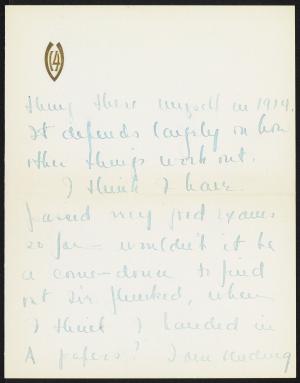 thing there myself in 1914.
It depends largely on how
other things work out.
I think I have
passed very good exams
so far – wouldn't it be
a come-down to find
out I'm flunked, when
I think I handed in
A papers? I am sending